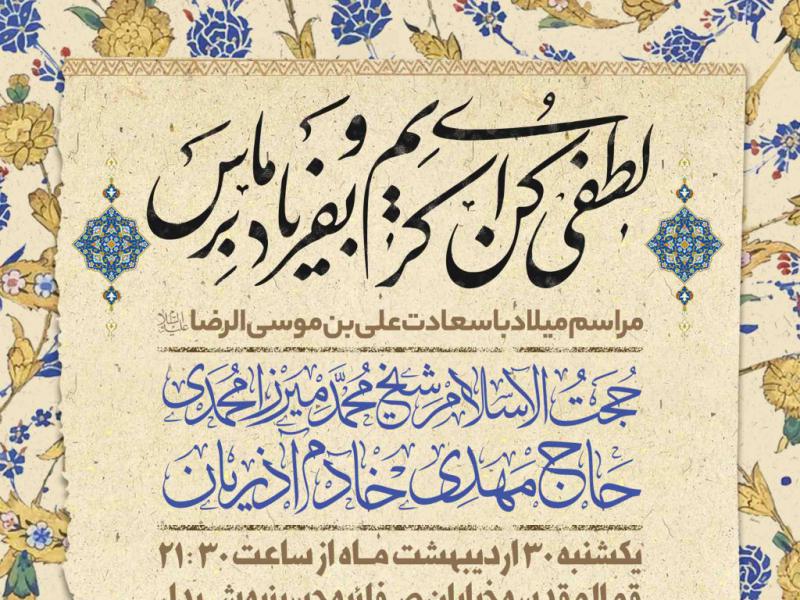 لطفی کن ای کریم و بفریاد ما برس
مراسم میلاد با سعادت علی بن موسی الرضا علیه‌السلام
حجت الاسلام شیخ محمد میرزامحمدی
حاج مهدی خادم آذریان
یکشنبه ۳۰ اردیبهشت ماه از ساعت ۲۱:۳۰
قم المقدسه خیابان